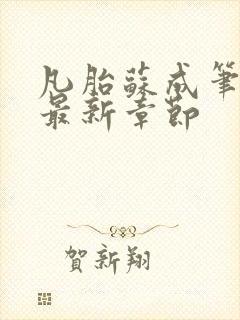 凡胎蘇成筆
最新章節
賀新翔